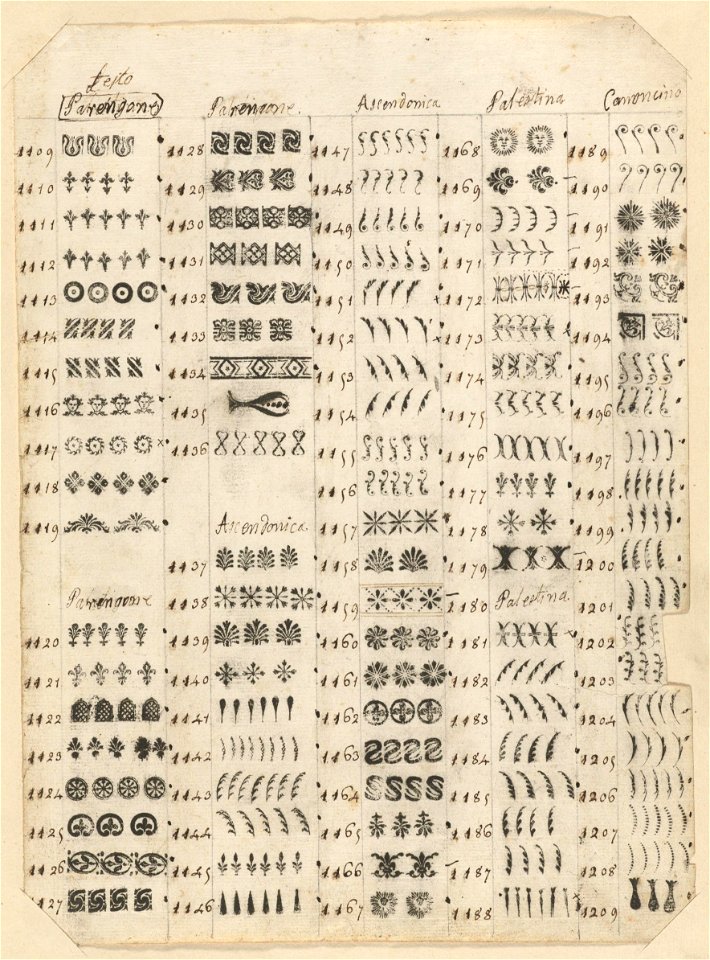 Testo
Parengone
1109
1110
1111
1112
1113
1114
1115
1116
1117
1118
1119
Parengone
1120
1121
1122
1123
1124
1125
1126
1127
Parengone.
1128
1129
1130
1131
1132
1133
1134
1135
1136
Ascendonica
1137
1138
1139
1140
1141
1142
1143
1144
1145
1146
Ascendonica
1147
1148
1149
1150
1151
1152
1153
1154
1155
1156
1157
1158
1159
1160
1161
1162
1163
1164
1165
1166
1167
Palestina
1168
1169
1170
1171
1172
1173
1174
1175
1176
1177
1178
1179
1180 Palestina
1181
1182
1183
1184
1185
1186
1187
1188
Canoncino
1189
1190
1191
1192
1193
1194
1195
1196
1197
1198
1199
1200
1201
1202
1203
1204
1205
1206
1207
1208
1209